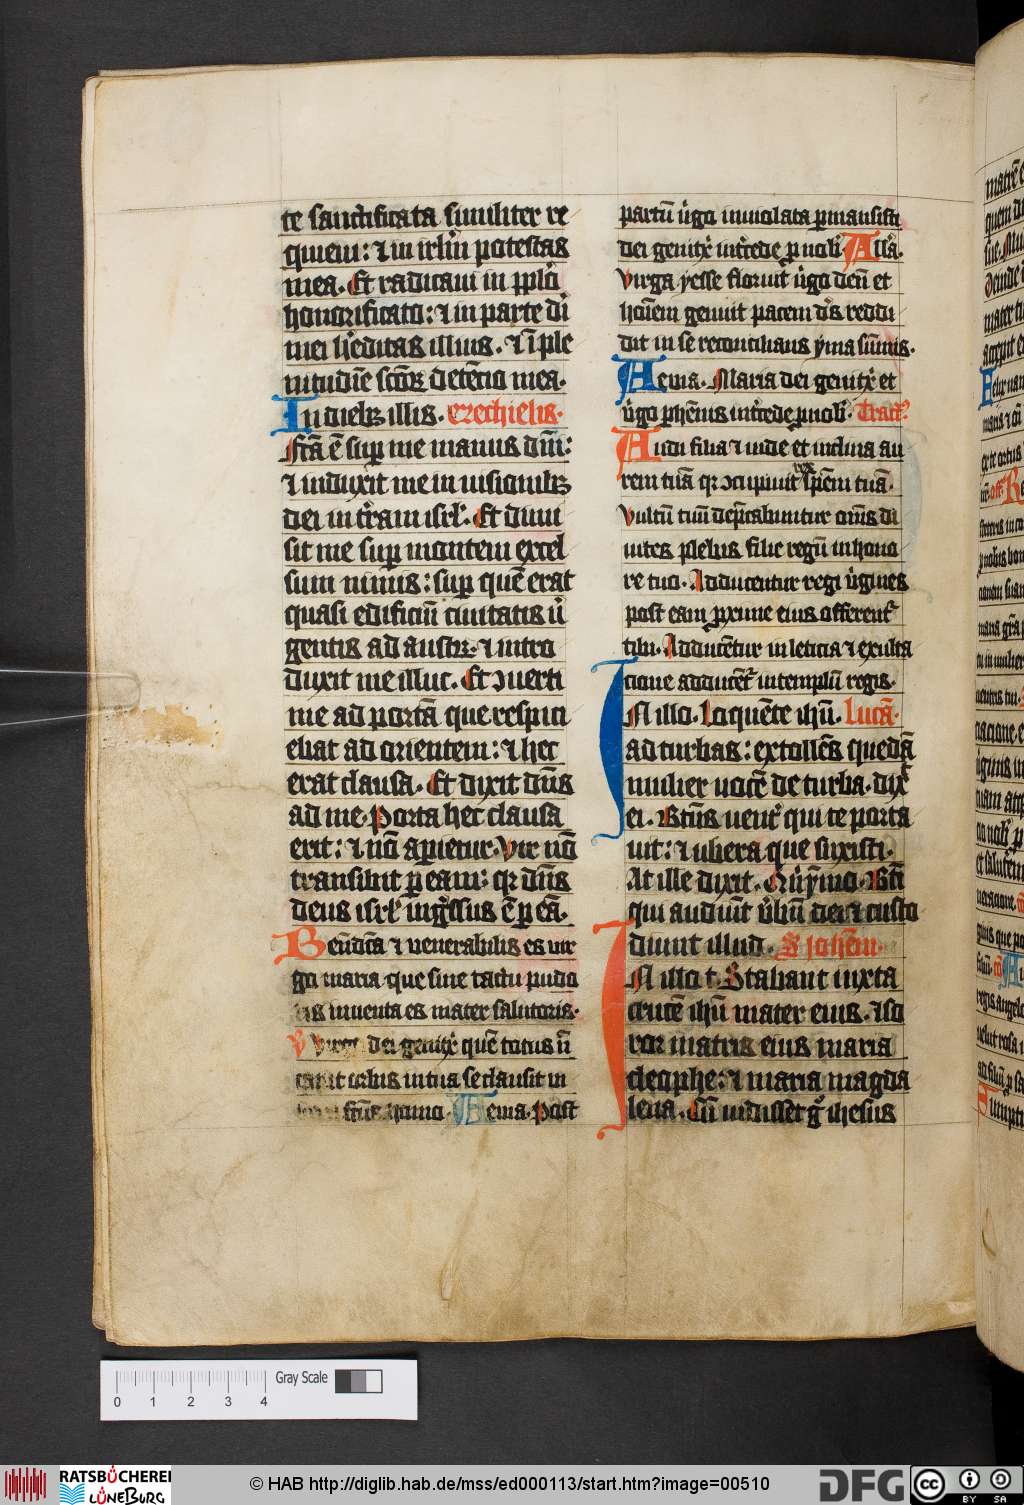 te sanctificata similiter re
quieui: ⁊ in irl̄m potestas
mea. Et radicaui in ppl̄o
honorificato: ⁊ in parte di
mei h̓editas illius. ⁊ ī ple
nitudīe sc̄oꝝ detēcio mea.
In diebꝫ illis. ezechielis.
Fc̄a ē sup me manus dn̄i:
⁊ induxit me in uisionibꝫ
dei in t̓ram isrl̓. Et dimi
sit me sup montem excel
sum nimis: sup quē erat
quasi edificiū ciuitatis ū
gentis ad austꝝ. ⁊ intro
duxit me illuc. Et ꝯuerti
me ad portā que respici
ebat ad orientem: ⁊ hec
erat clausa. Et dixit dn̄s
ad me. Porta hec clausa
erit: ⁊ nō apietur. Vir nō
transibit p eam: qr dn̄s
deus isrl̓ ing̓ssus ē p eā.
Bēdc̄a ⁊ uenerabilis es uir
go maria que sine tactu pudo
ris inuenta es mater saluatoris.
V Virgo dei genitx̓ quē totus n̄
capit orbis in tua se clausit ui
scera fc̄us homo. Aeuia. Post
partū u̓go inuiolata pmansisti
dei genitx̓ int̓cede p nob̓. All̓a.
Virga yesse floruit u̓go deū et
hoīem genuit pacem d̄s reddi
dit in se reconcilians yma sūmis.
Aeuia. Maria dei genitx̓ et
u̓go phēnis int̓cede p nob̓. Tract᷒
Audi filia ⁊ uide et inclina au
rem tuā qr ꝯcupiuit rex spēm tuā.
Vultū tuū dep̓cabuntur om̄s di
uites plebis filie regū in hono
re tuo. Adducentur regi u̓gines
post eam pxime eius offerent᷒
tibi. Adducētur in leticia ⁊ exulta
cione adducēt᷒ in templū regis.
IN illo. Loquēte ih̄u. Lucā.
ad turbas: extollēs quedā
mulier uocē de turba. dix᷒
ei. Bt̄us uent̓ qui te porta
uit: ⁊ ubera que suxisti.
At ille dixit. Quȳmo. Bt̄i
qui audiūt u̓bū dei ⁊ custo
diunt illud. S Johēm.
IN illo t. Stabant iuxta
crucē ih̄u mater eius. ⁊ so
ror matris eius maria
cleophe: ⁊ maria magda
lena. Cū uidisset g̓ ihesus
0 1 2 3 4
Gray Scale
RATSBÜCHEREI
LÜNEBURG
© HAB http://diglib.hab.de/mss/ed000113/start.htm?image=00510
DFG
cc BY SA